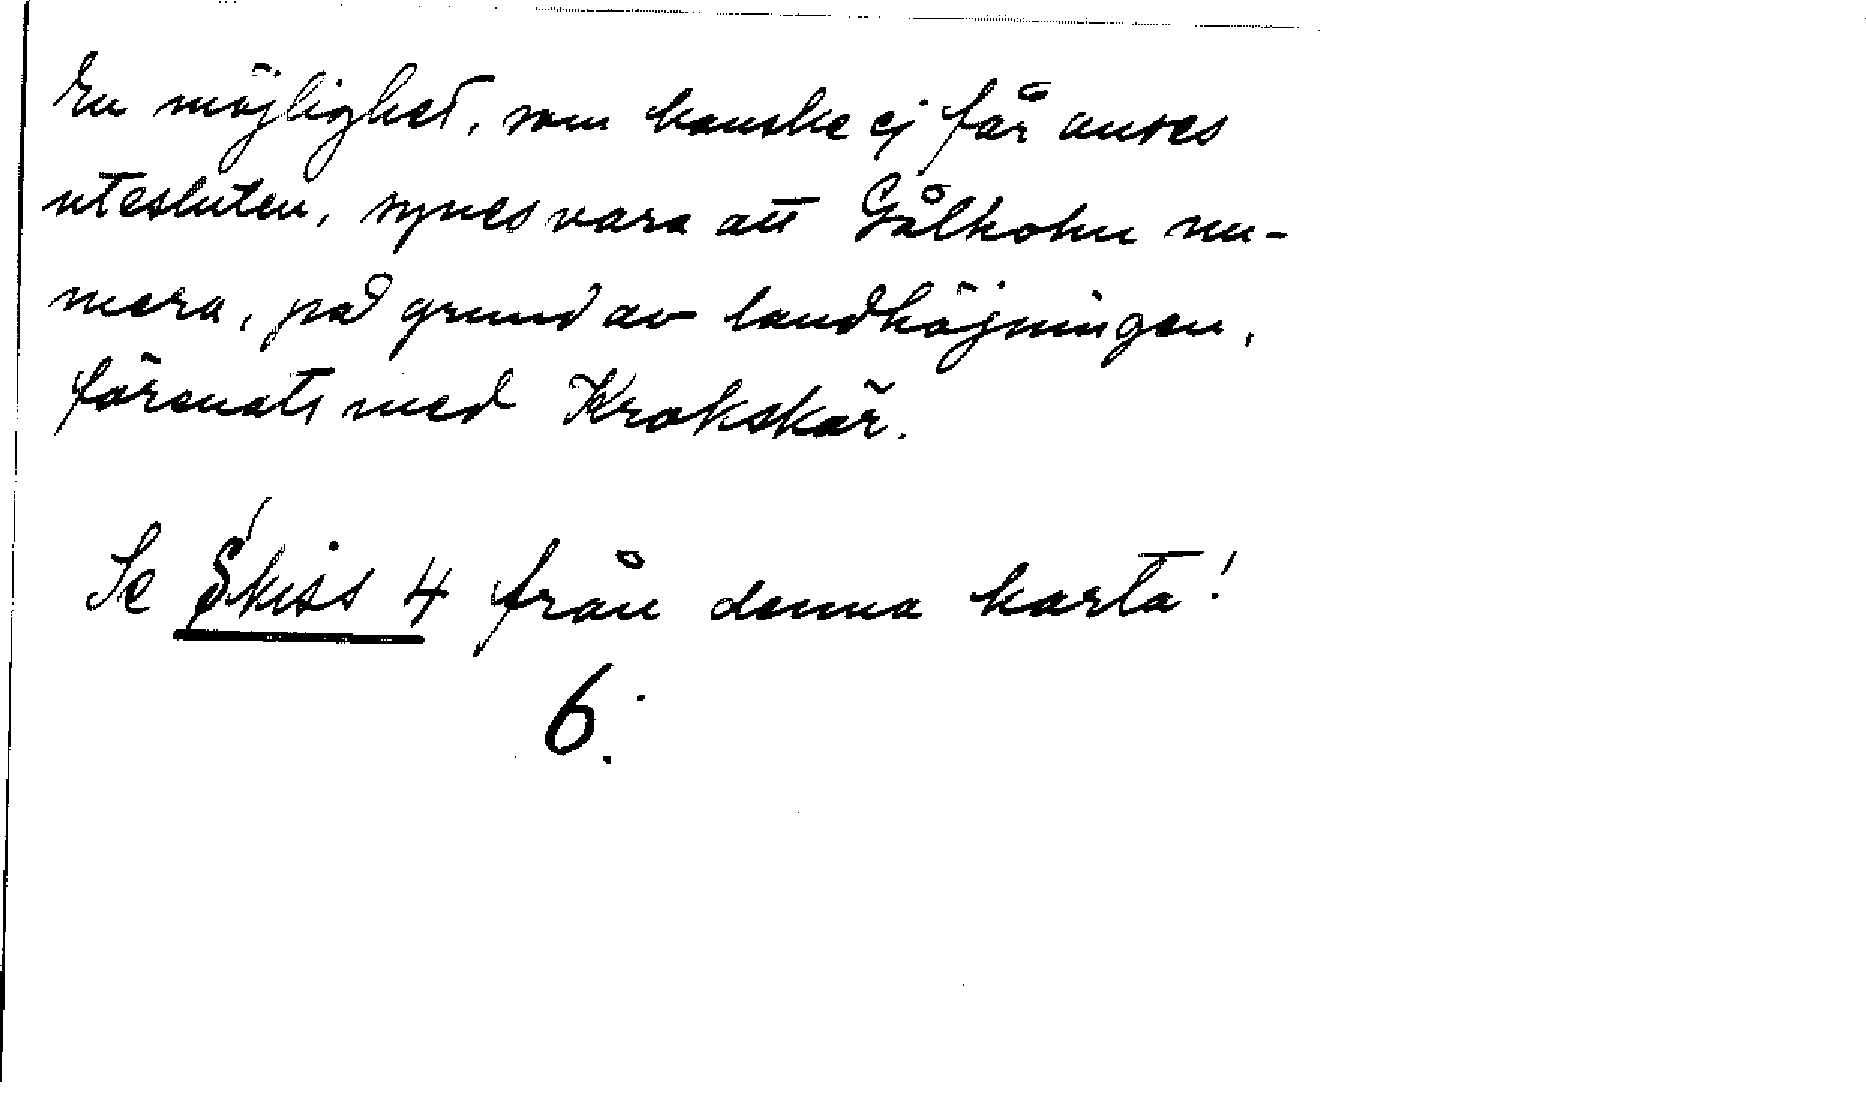 En möjlighet, som kanske ej får anses
utesluten, synes vara att Gålholm nu-
mera, på grund av landhöjningen,
förenats med Krokskär.
Se Skiss 4 från denna karta!
6.